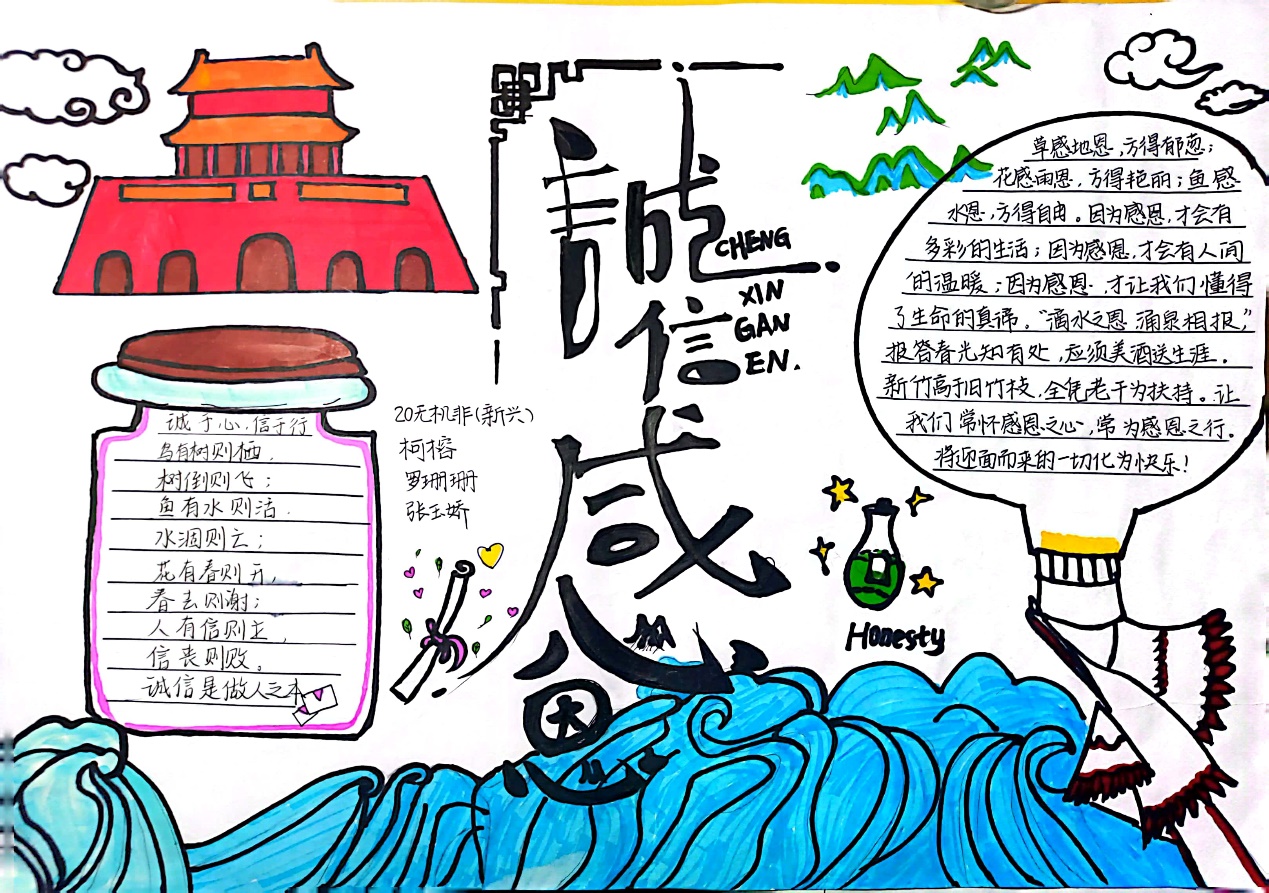 誠信感恩
CHENG
XIN
GAN
EN.
诚于心,信于行
鸟有树则栖,
树倒则飞;
鱼有水则活,
水涸则亡;
花有春则开,
春去则谢;
人有信则立,
信丧则败。
诚信是做人之本
20无机非(新兴)
柯榕
罗珊珊
张玉娇
草感地恩,方得郁葱;
花感雨恩,方得艳丽;鱼感
水恩,方得自由。因为感恩,才会有
多彩的生活;因为感恩,才会有人间
的温暖;因为感恩,才让我们懂得
了生命的真谛。“滴水之恩,涌泉相报,”
报答春光知有处,应须美酒送生涯。
新竹高于旧竹枝,全凭老干为扶持。让
我们常怀感恩之心,常为感恩之行。
将迎面而来的一切化为快乐!
Honesty